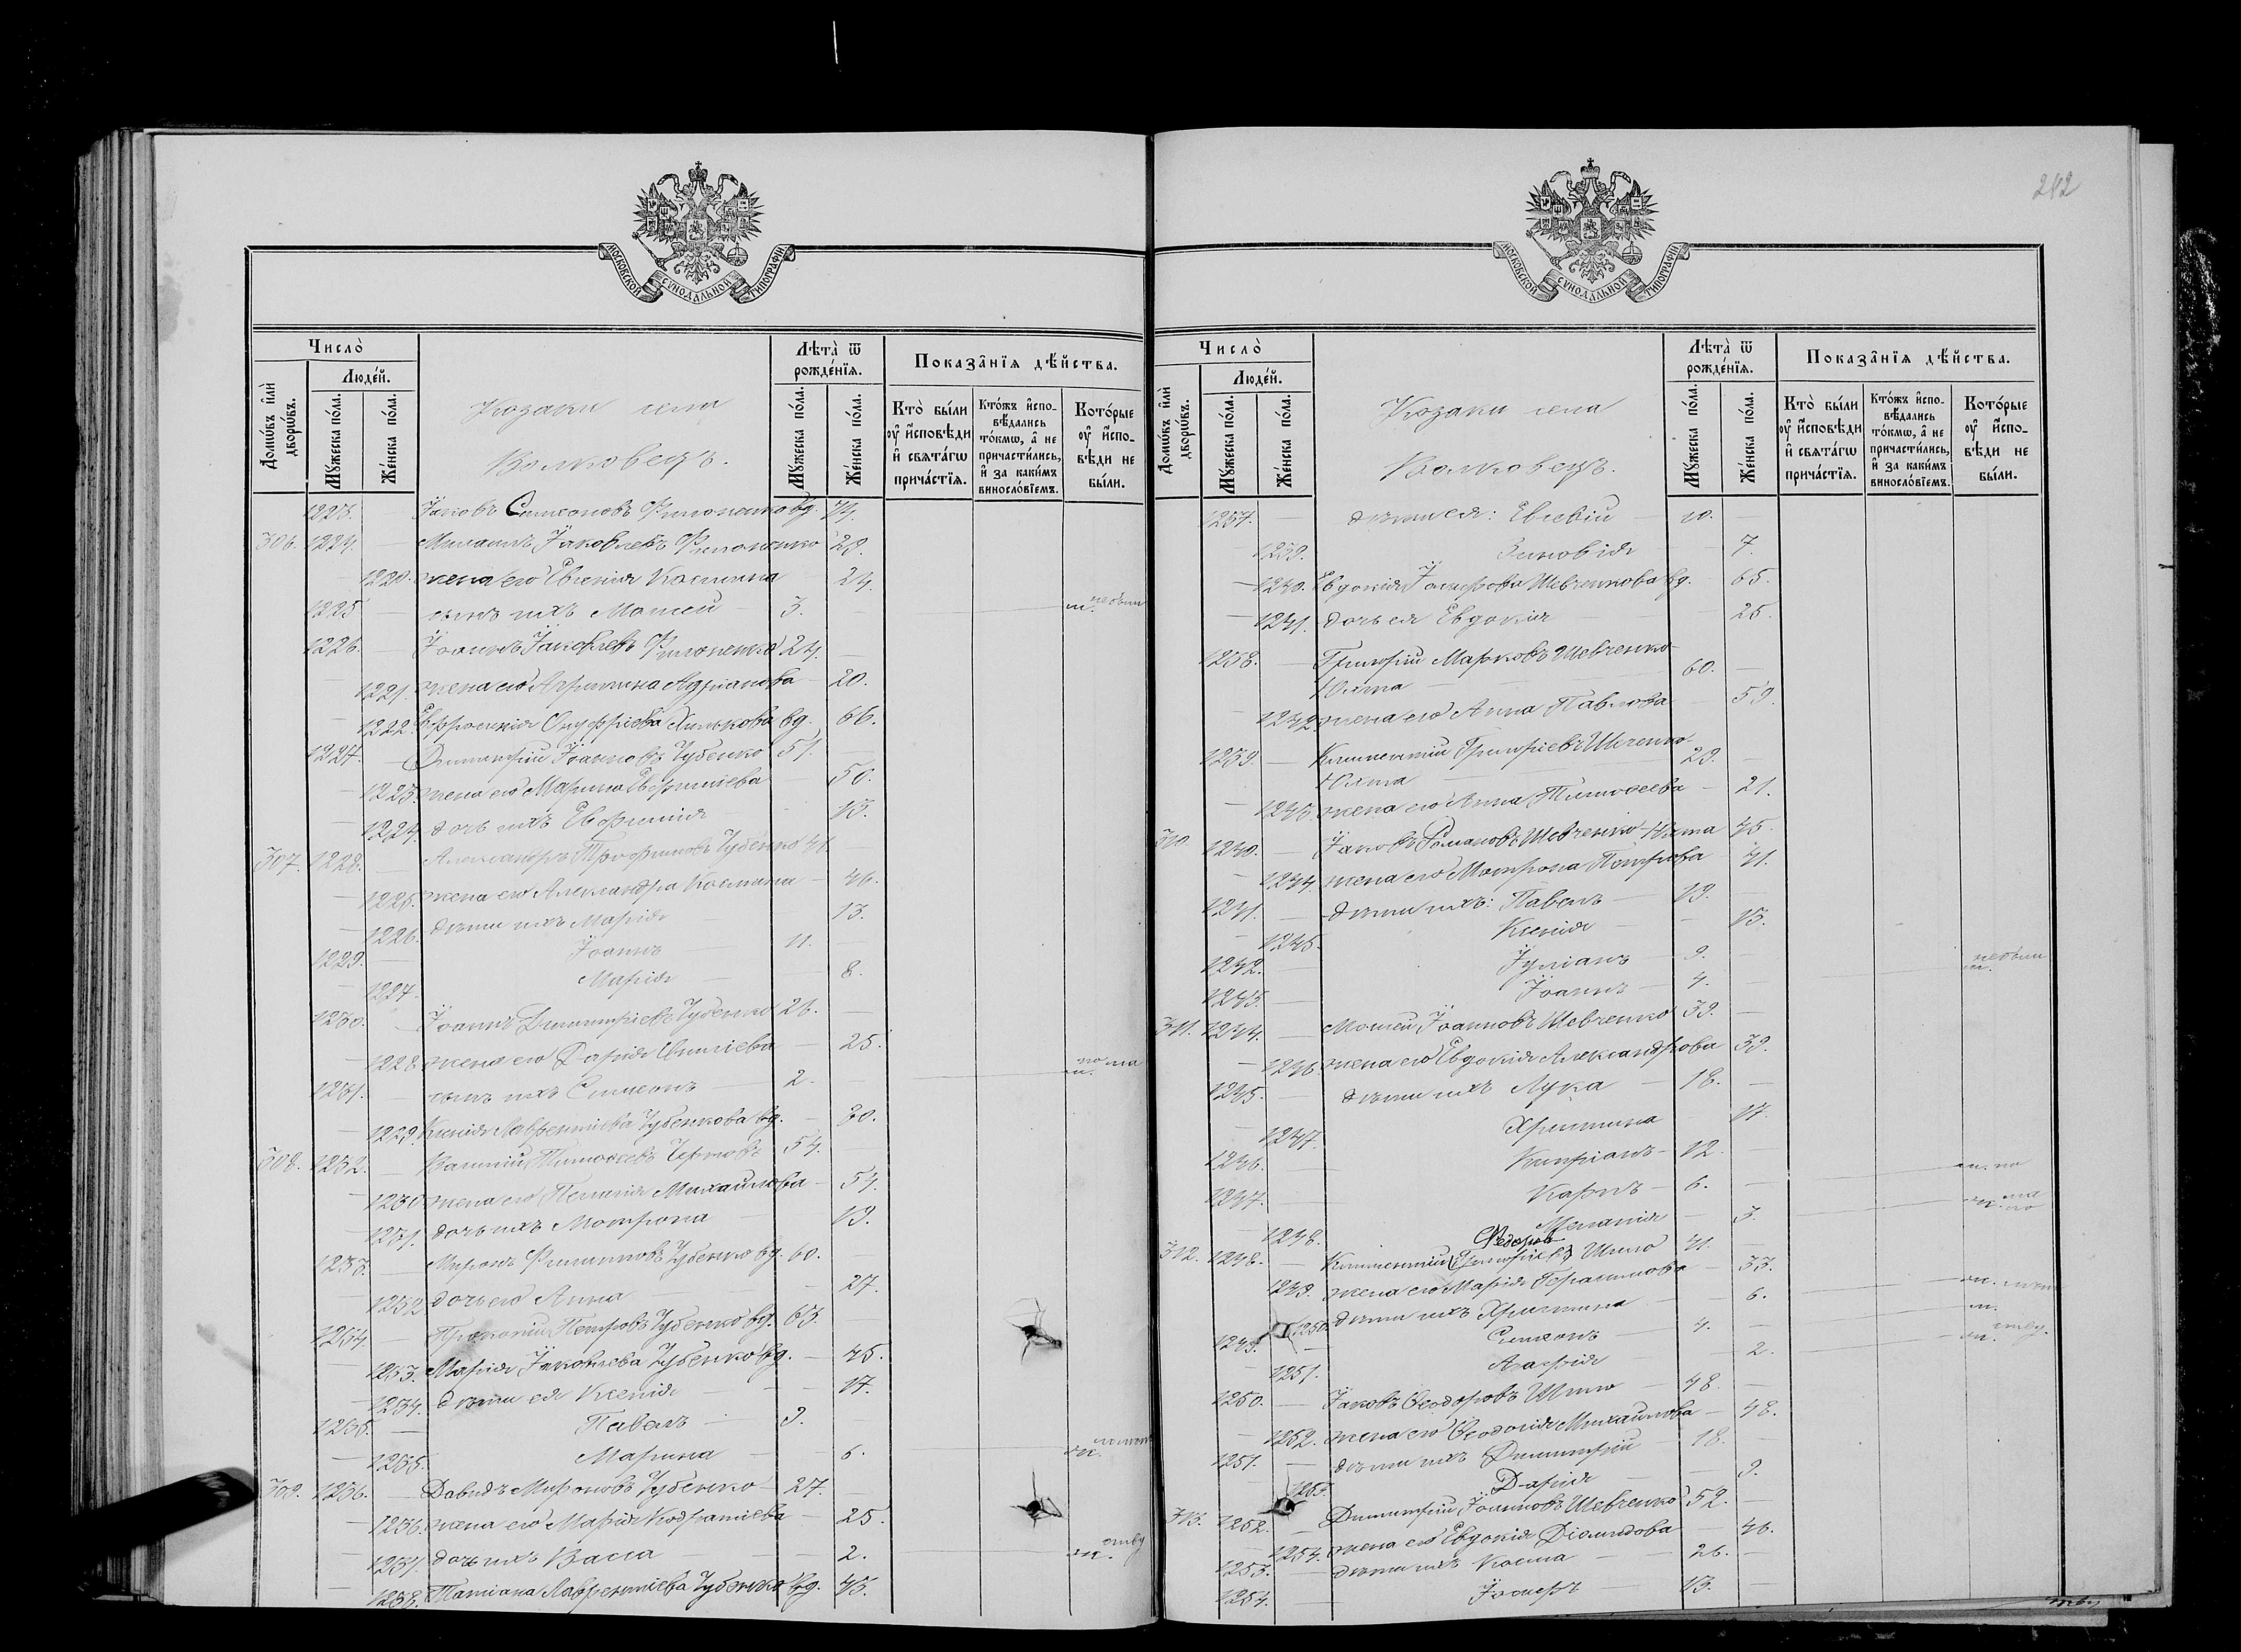 242
МОСКОВСКОЙ СѴНОДАЛЬНОЙ ТИПОГРАФІИ
Число̀
Домѡ́въ и҆лѝ дворѡ́въ.
Люде́й.
Мꙋ́жеска по́ла.
Же́нска по́ла.
Козаки села
Волковецъ.
Лѣта̀ ѿ рожде́нїѧ.
Мꙋ́жеска по́ла.
Же́нска по́ла.
Показа̑нїѧ дѣ́йства.
Кто̀ бы́ли ᲂу҆ и҆сповѣ́ди и҆ свѧта́гѡ прича́стїѧ.
Кто́жъ и҆спо-вѣ́дались то́кмѡ, а҆ не причасти́лись, и҆ за каки́мъ виносло́вїемъ.
Кото́рые ᲂу҆ и҆спо-вѣ́ди не бы́ли.
1223. Іаковъ Симеоновъ Филоненко вд. 74.
306. 1224. Михаилъ Іаковлевъ Филоненко 28.
1220. жена его Евгенія Космина 24.
1225 сынъ ихъ Моисей 3.
1226. Іоаннъ Іаковлевъ Филоненко 24.
1221. жена его Агрипина Адріанова 20.
1222. Ефросинія Онуфріева вд. 66.
1227. Димитрій Іоанновъ Чубенко 51.
1223. жена его Марина 50.
1224. дочь ихъ Евфимія 13.
307. 1228. Александръ Трофимовъ Чубенко 41
1225. жена его Александра Космина 46.
1226. дѣти ихъ Марія 13.
1229. Іоаннъ 11.
1227. Марія 8.
1230. Іоаннъ Димитріевъ Чубенко 26.
1228. жена его Дарія 25.
1231. сынъ ихъ Симеонъ 2.
1229. Ксенія Лаврентіева Чубенкова вд. 30.
308. 1232. Василій Тимоѳеевъ 54.
1230 жена его Пелагія Михаилова 54.
1231. дочь ихъ Мотрона 19.
1233. Миронъ Филипповъ Чубенко вд. 60.
1232 дочь его Анна 27.
1234. Прокопій Петровъ Чубенко вд. 63.
1253. Марія Іаковлева Чубенко вд. 45.
1234. дѣти ея Ксенія 17.
1235. Павелъ 9.
1235. Марина 6.
309. 1236. Давидъ Мироновъ Чубенко 27.
1236. жена его Марія Кодратіева 25.
1237. дочь ихъ Васса 2.
1238. Татіана Лаврентіева Чубенко вд. 43.
МОСКОВСКОЙ СѴНОДАЛЬНОЙ ТИПОГРАФІИ
Число̀
Домѡ́въ и҆лѝ дворѡ́въ.
Люде́й.
Мꙋ́жеска по́ла.
Же́нска по́ла.
Козаки села
Волковецъ.
Лѣта̀ ѿ рожде́нїѧ.
Мꙋ́жеска по́ла.
Же́нска по́ла.
Показа̑нїѧ дѣ́йства.
Кто̀ бы́ли ᲂу҆ и҆сповѣ́ди и҆ свѧта́гѡ прича́стїѧ.
Кто́жъ и҆спо-вѣ́дались то́кмѡ, а҆ не причасти́лись, и҆ за каки́мъ виносло́вїемъ.
Кото́рые ᲂу҆ и҆спо-вѣ́ди не бы́ли.
1237. дѣти ея: Евсевій 10.
1239. Зиновія 7.
1240. Евдокія Іосифова Шевченкова вд. 65.
1241. дочь ея Евдокія 25.
1238. Григорій Марковъ Шевченко-
Юхта 60.
1242. жена его Анна Павлова 59.
1239. Климентій Григоріевъ Шевченко-
Юхта 29.
1243. жена его Анна Тимоѳеева 21.
310. 1240. Іаковъ Романовъ Шевченко-Юхта 45.
1244. жена его Мотрона Петрова 41.
1241. дѣти ихъ: Павелъ 19.
1245. Ксенія 13.
1242. Іуліанъ 9.
1243. Іоаннъ 4.
311. 1244. Моисей Іоанновъ Шевченко 39.
1246. жена его Евдокія Александрова 39.
1245. дѣти ихъ Лука 18.
1247. Христина 17.
1246. Кипріанъ 12.
1247. Карпъ 6.
1248. Меланія 3.
Федоров
312. 1248. Климентій (Григоріевъ) Шило 41.
1249. жена его Марія Герасимова 33.
1250. дѣти ихъ Христина 6.
1249. Симеонъ 4.
1251. Агафія 2.
1250. Іаковъ Ѳеодоровъ Шило 48.
1252. жена его Ѳеодосія Михаилова 48.
1251. дѣти ихъ Димитрій 18.
1253. Дарія 9.
313. 1252. Димитрій Іоанновъ Шевченко 52.
1254. жена его Евдокія Діомидова 46.
1253. дѣти ихъ Косма 26.
1254. Іосифъ 13.